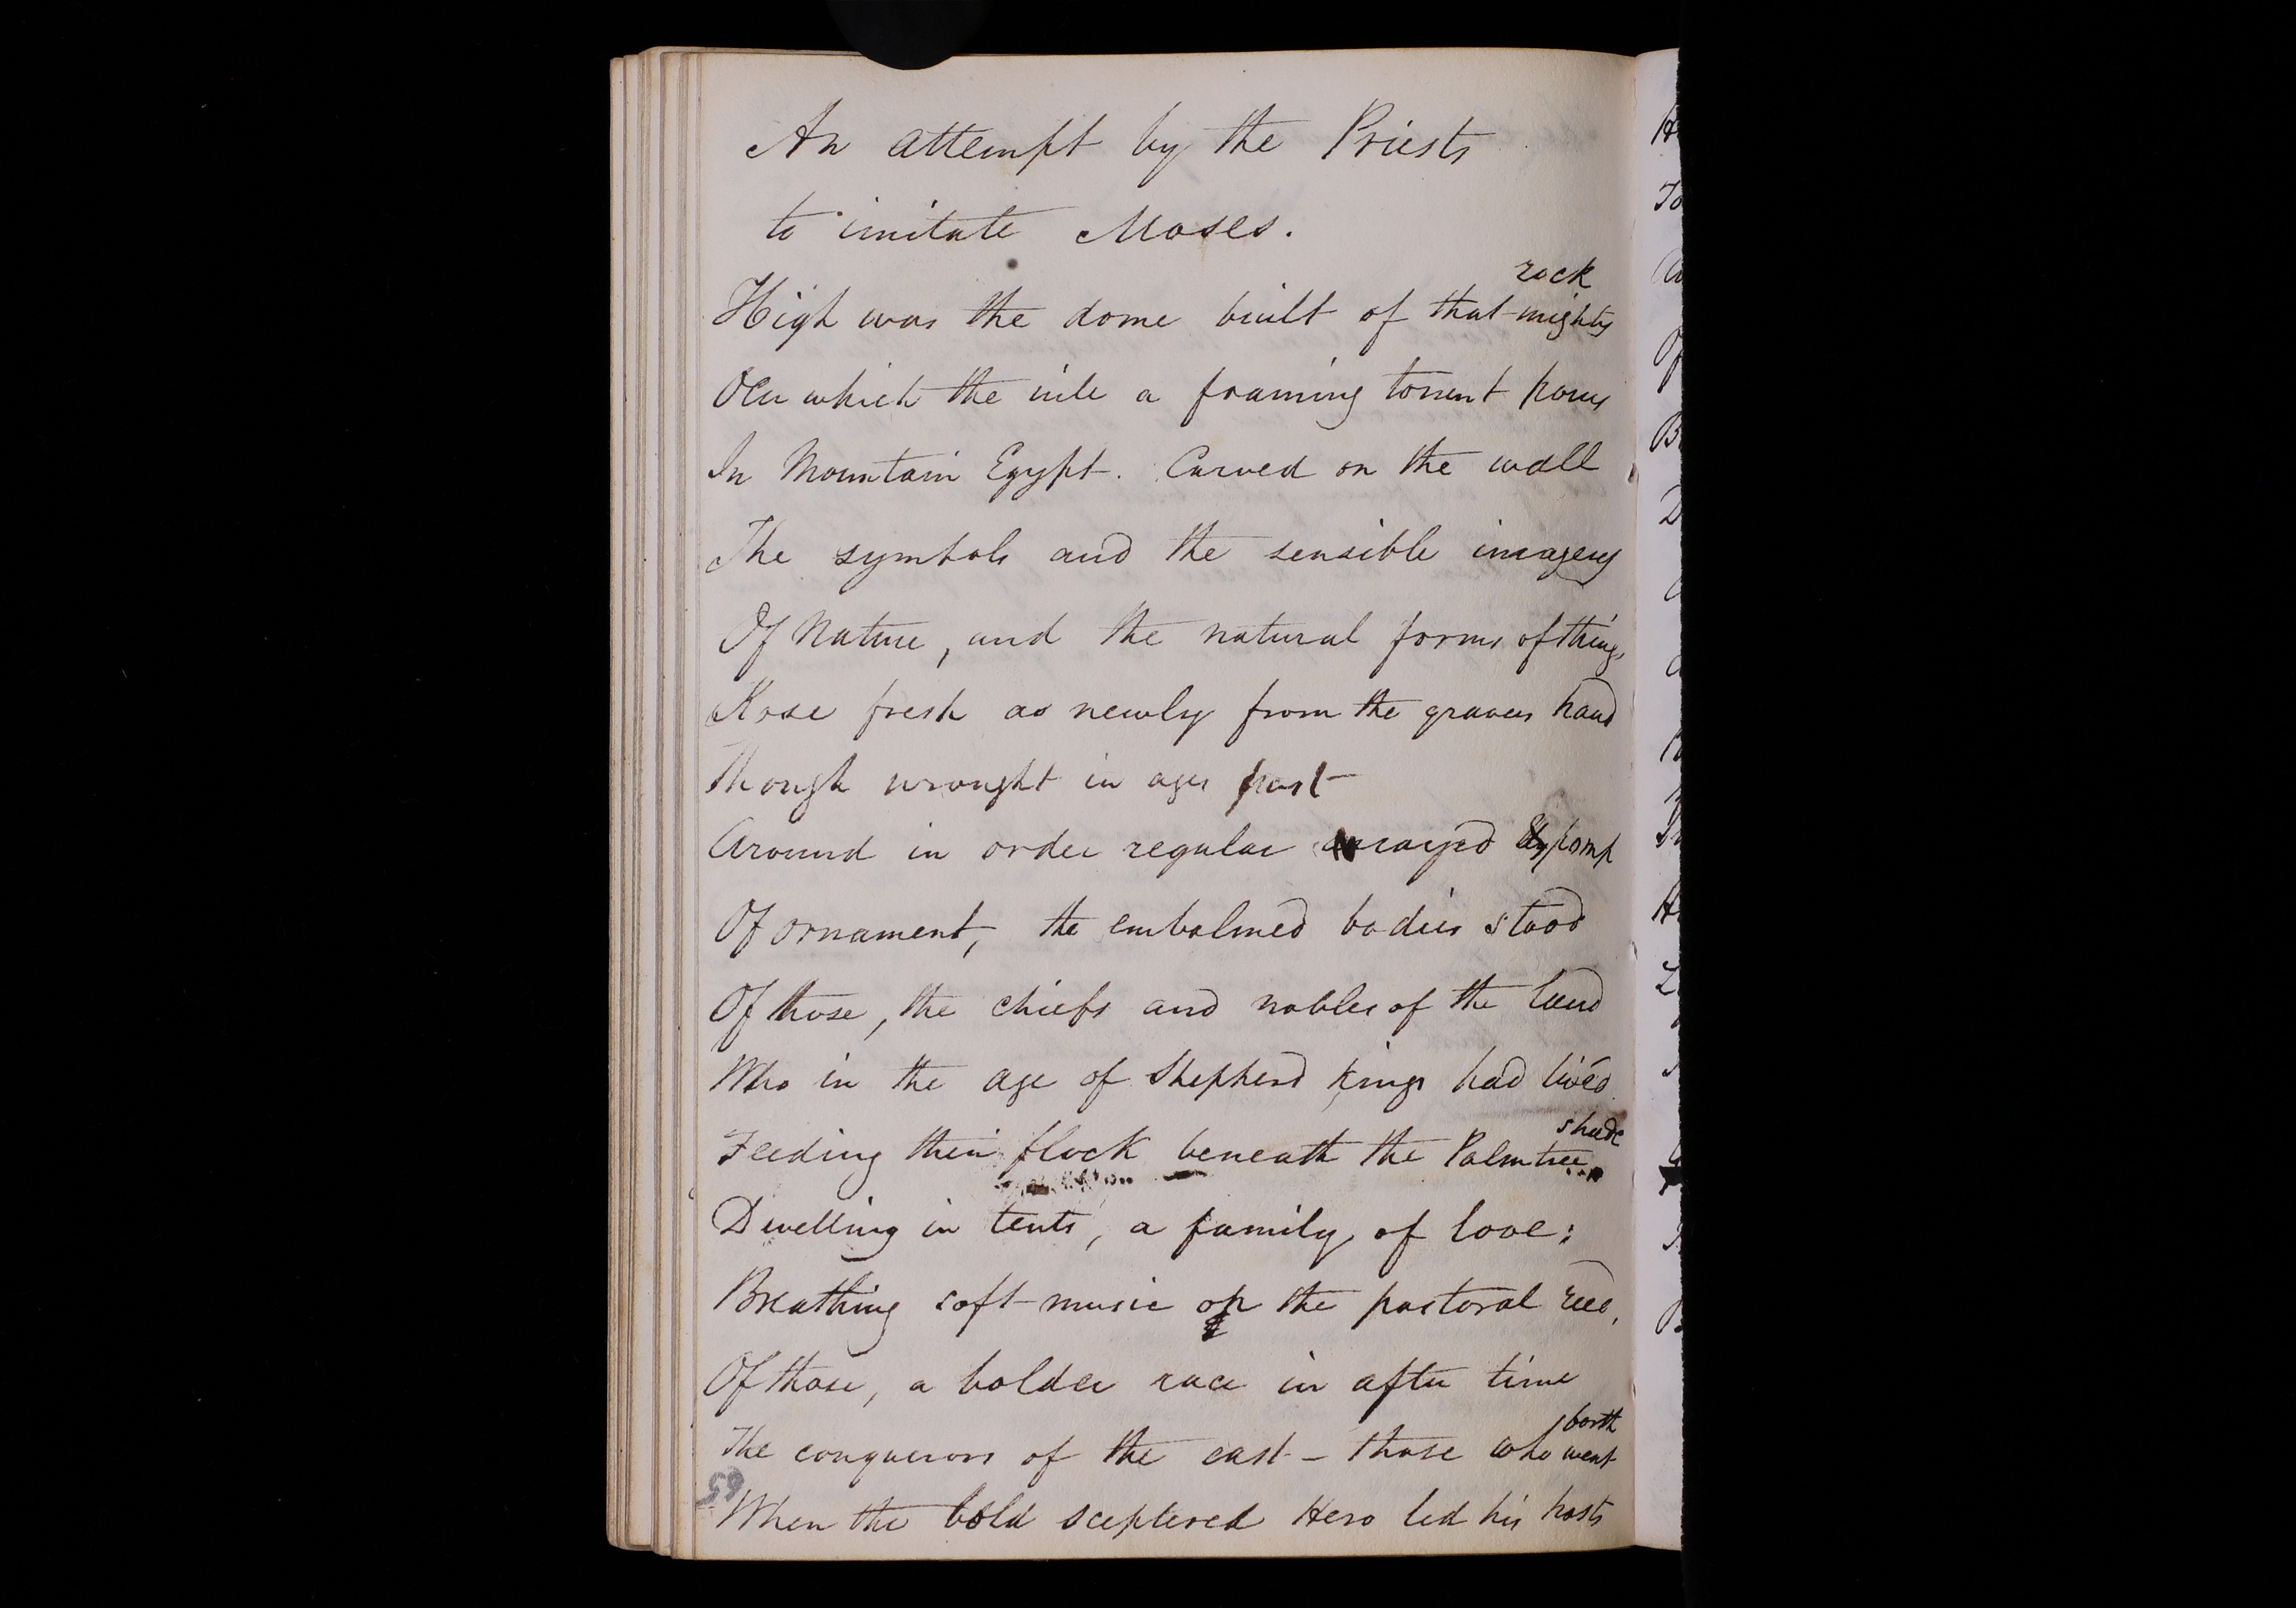 An attempt by the Priests
to imitate Moses.
rock
High was the dome built of that mighty
Oer which the nile a foaming torrent pours
In Mountain Egypt. Carved on the wall
The symbols and the sensible imagery
Of Nature, and the natural forms of things
Rose fresh as newly from the gravers hand
Though wrought in ages past
Around in order regular arrayed pomp
Of ornament, the embalmed bodies stood
Of those, the chiefs and nobles of the land
Who in the age of Shepherd kings had lived
shade
Feeding their flock beneath the Palmtree
Dwelling in tents, a family of love;
Breathing soft music on the pastoral reed,
Of those, a bolder race in after time
forth
The conquerors of the east - those who went
65
When the bold sceptered Hero led his hosts